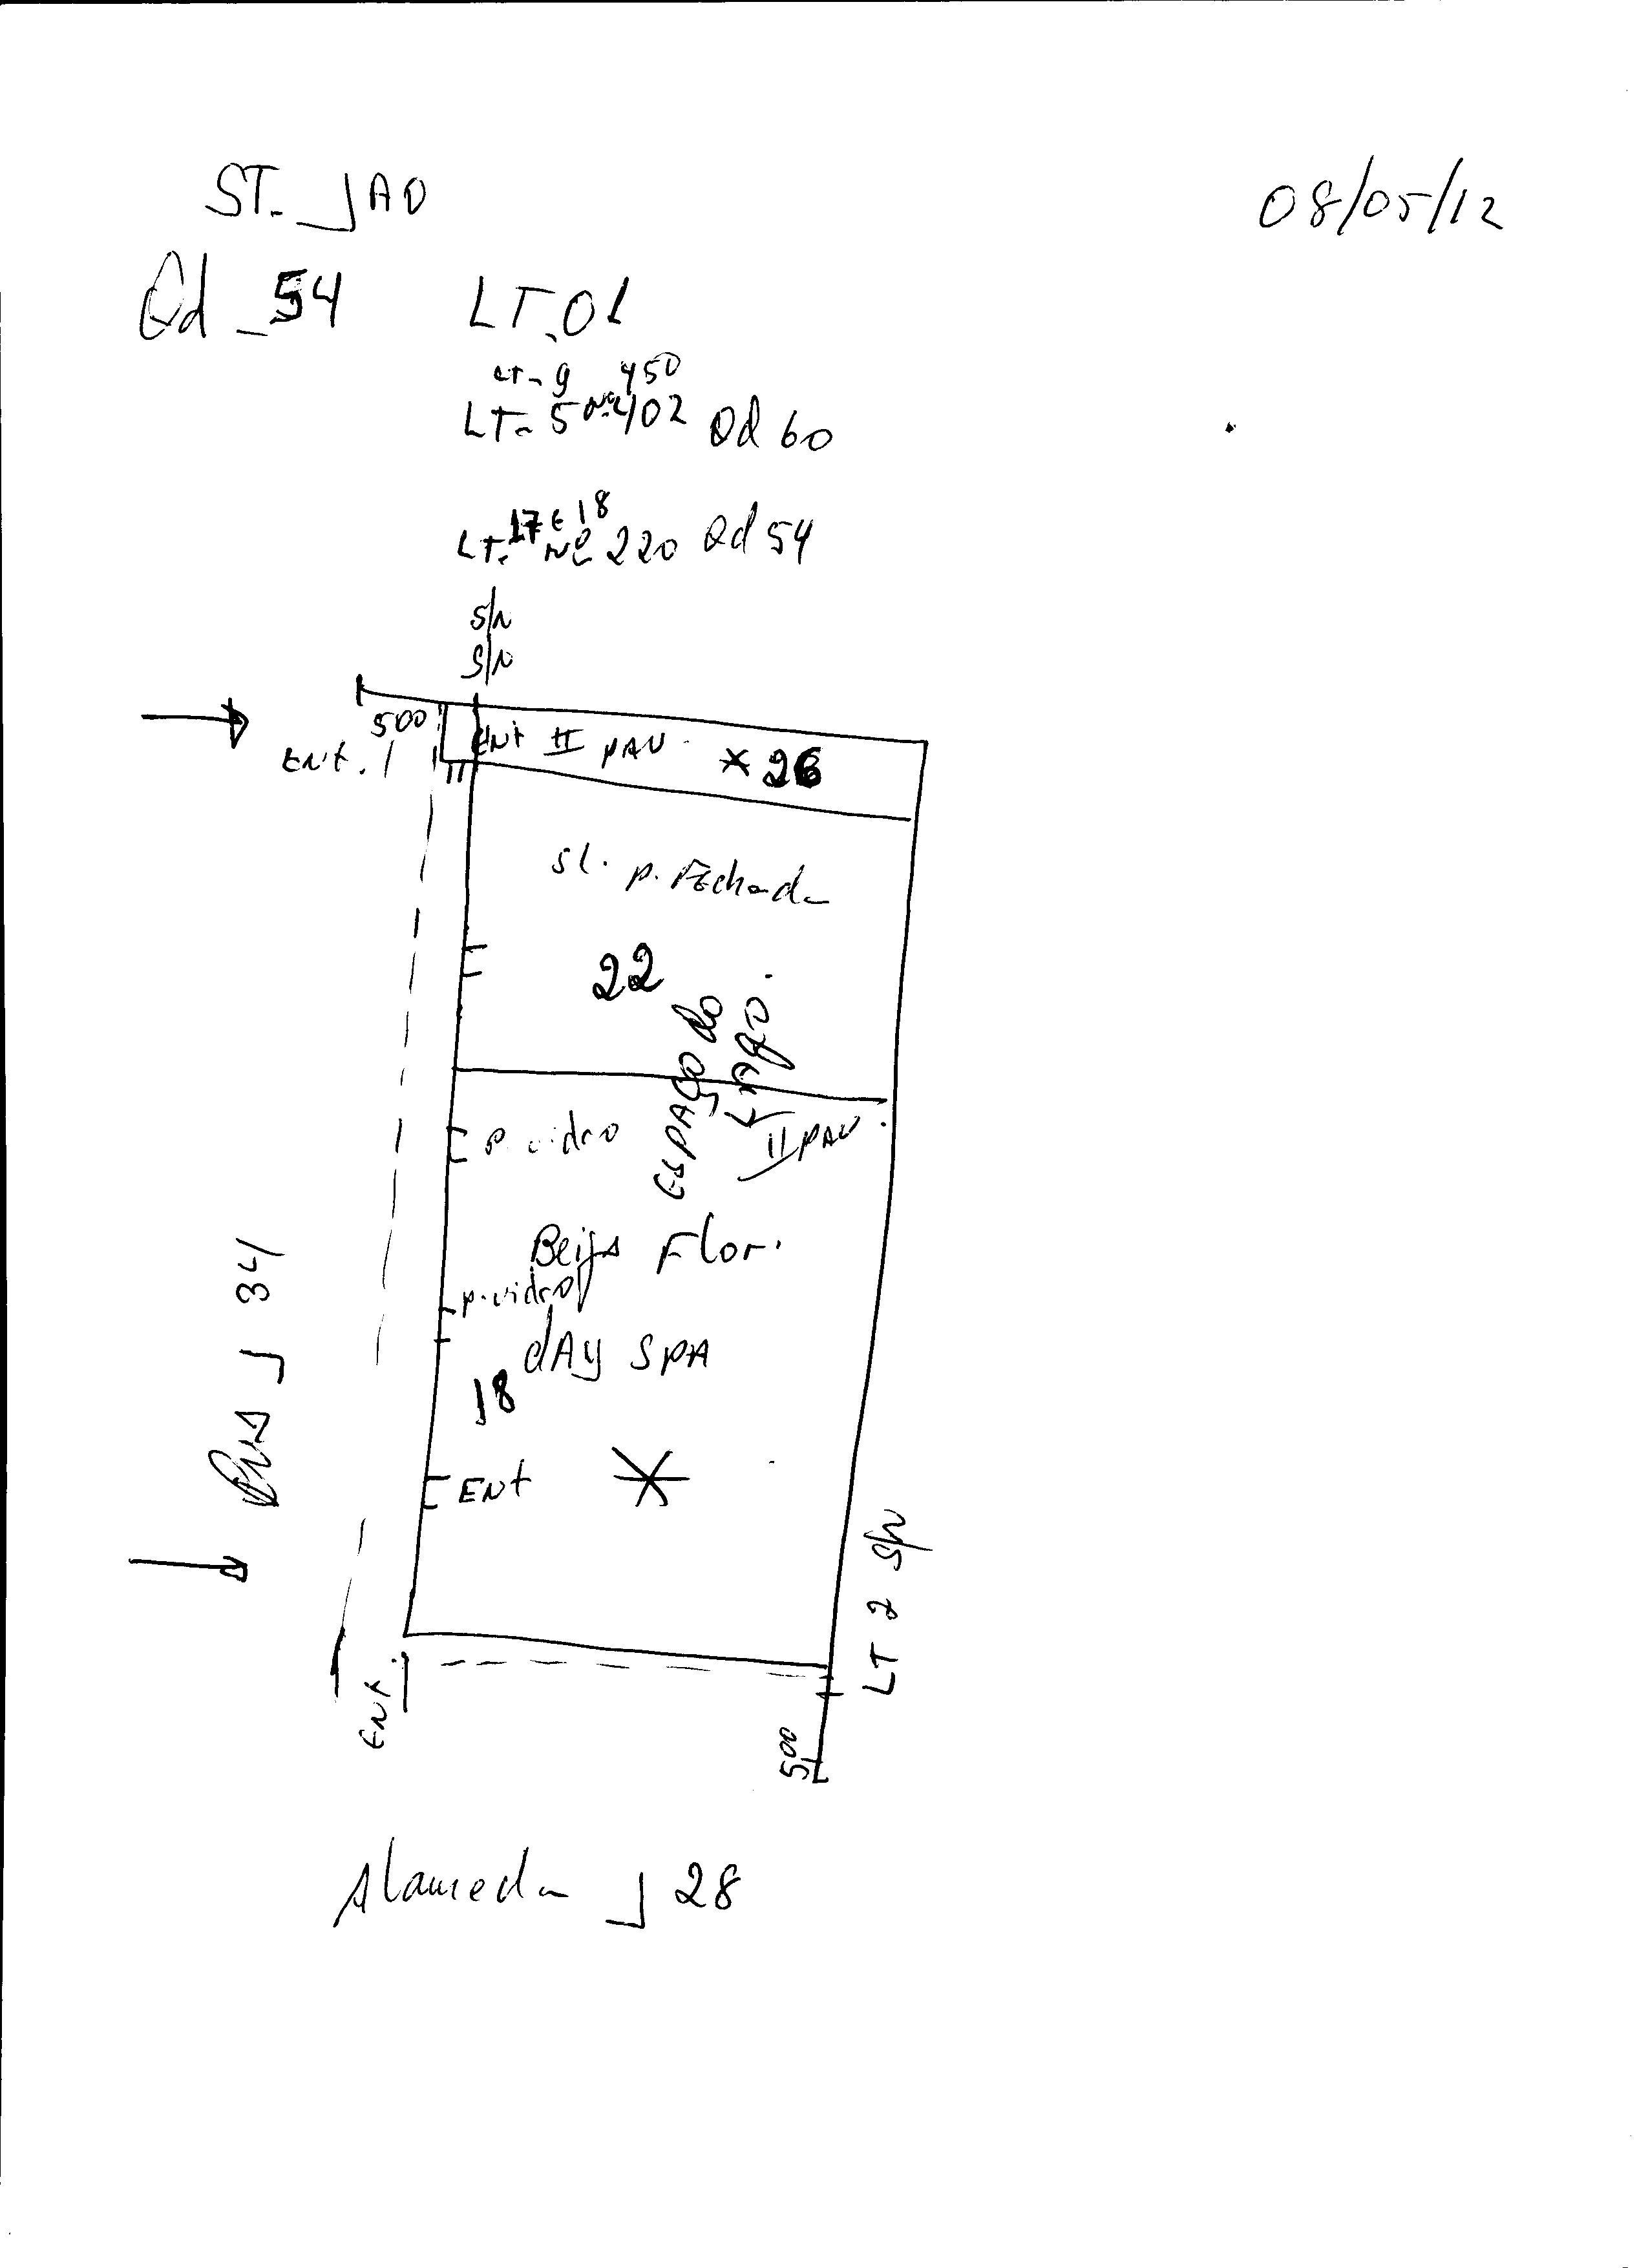 ST. JAO
08/05/12
Qd 54 LT. 01
LT- 9 450
LT- 5 Nº 402 Qd 60
17 E 18
LT. Nº 220 Qd 54
S/N
S/N
500
Ent.
Ent II PAV. * 26
SL. P. Fechada
22
Espaço do
Lago.
II PAV.
P. vidro
Beija Flor.
P. vidro
dAy SPA
18
Ent
Rua J 34
LT 2 S/N
Ent
500
Alameda J 28